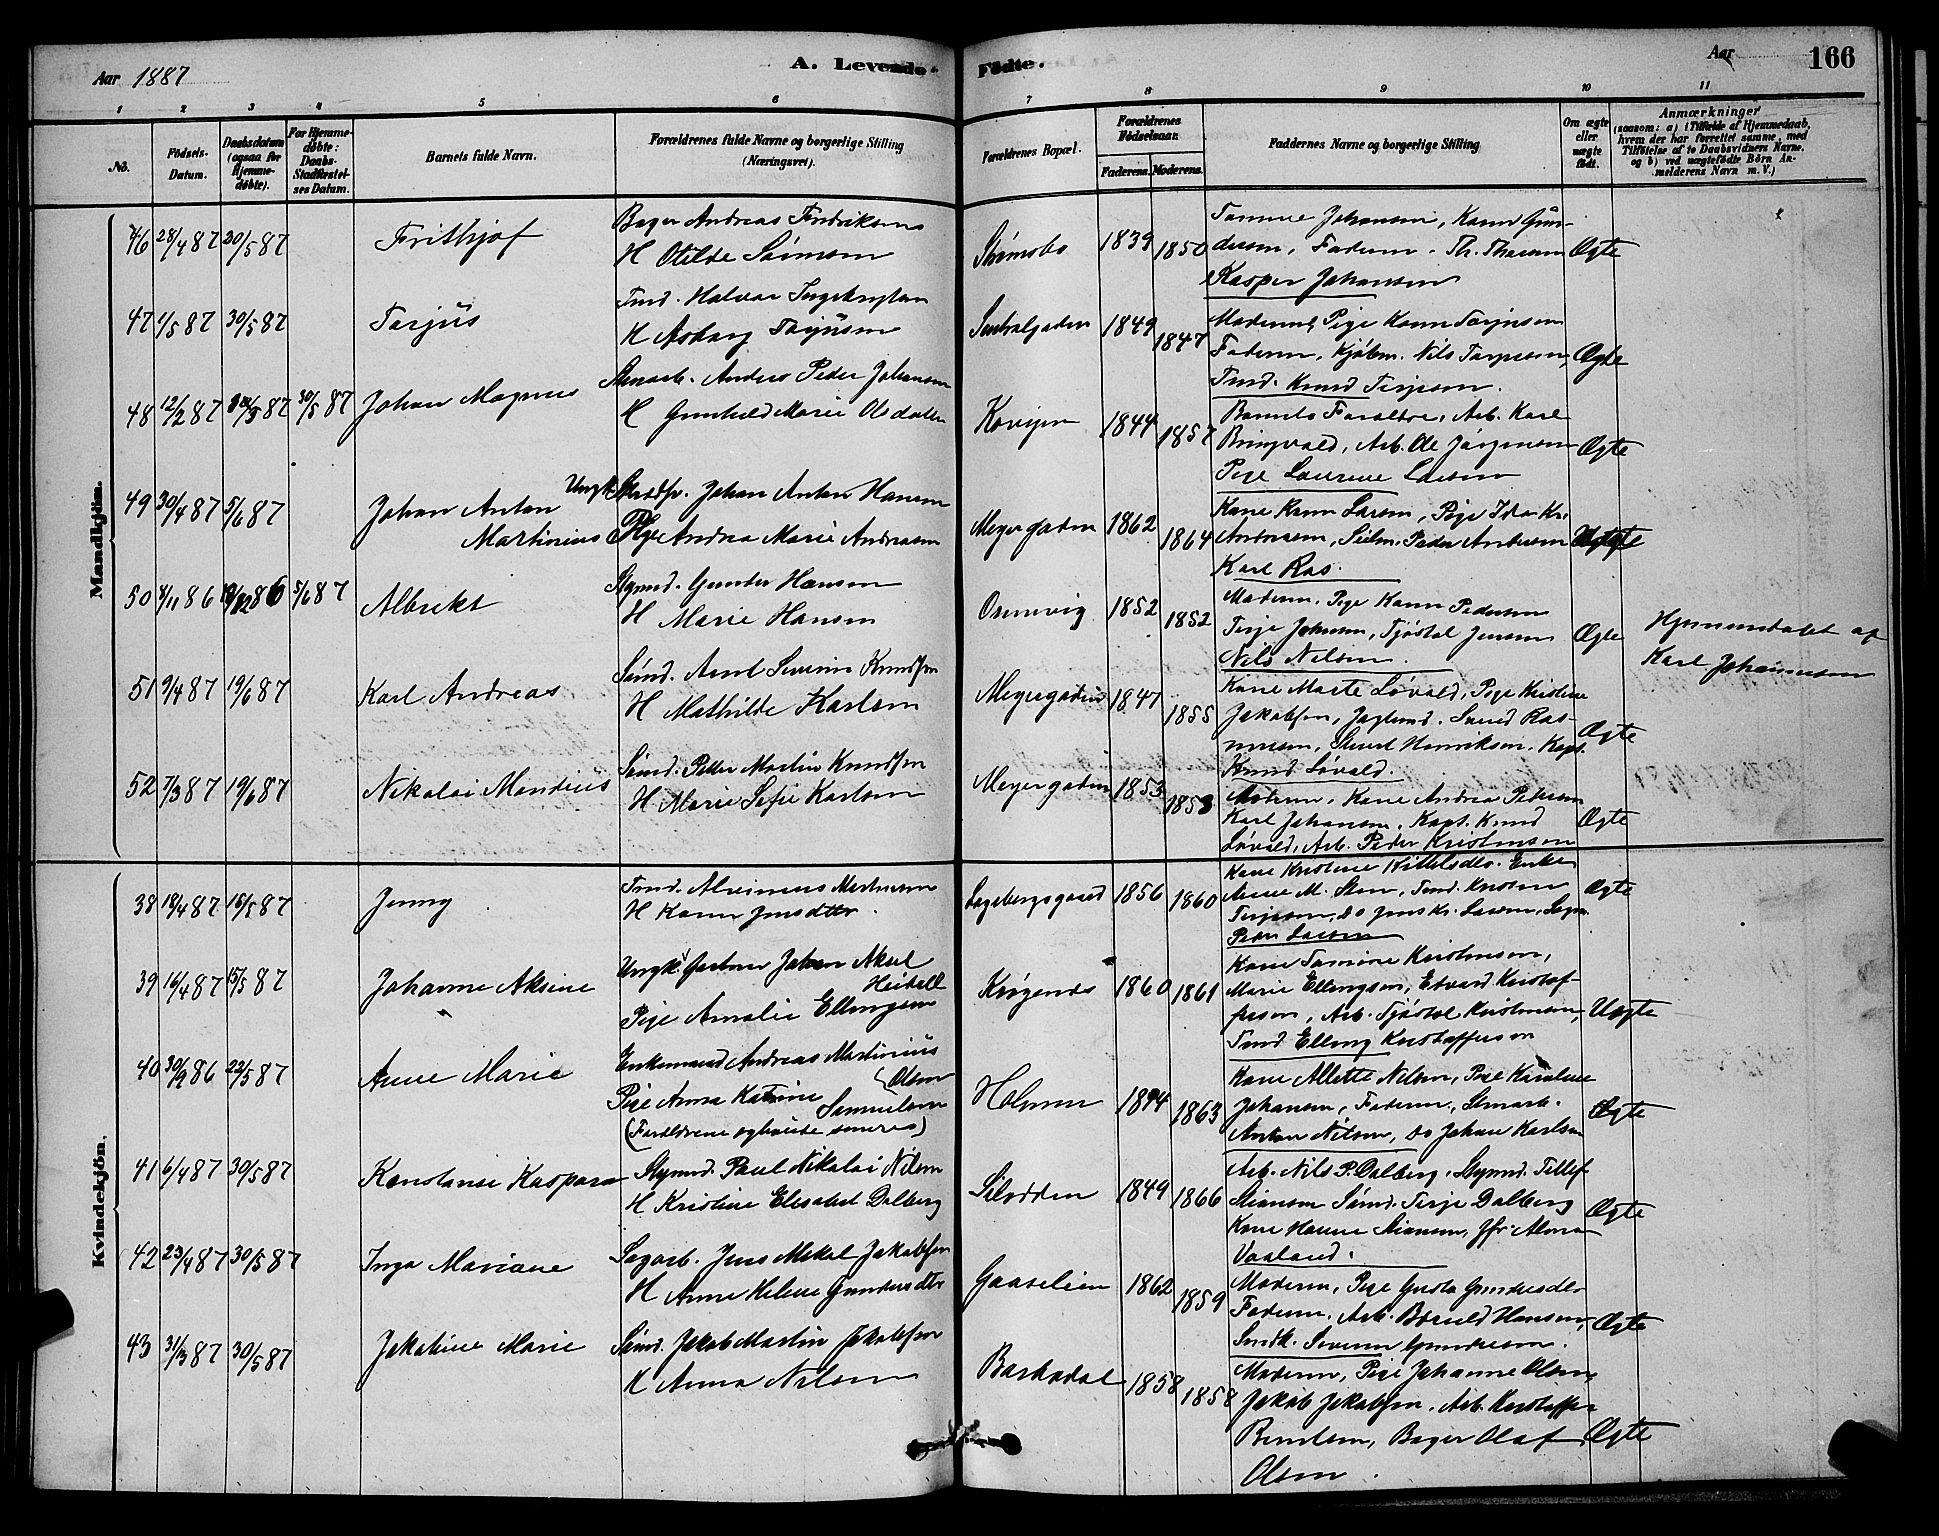 Aar 1887
A. Levende
Fødte.
Aar
166
1 2 3 4 5 6 7 8 9 10 11
No.
Fødsels-
Datum.
Daabsdatum
(ogsaa for
Hjemme-
døbte).
For Hjemme-
døbte:
Daabs-
Stadfæstel-
ses Datum.
Barnets fulde Navn.
Forældrenes fulde Navne og borgerlige Stilling
(Næringsvei).
Forældrenes Bopæl.
Forældrenes
Fødselsaar.
Faderens. Moderens.
Faddernes Navne og borgerlige Stilling
Om ægte
eller
uægte
født.
Anmærkninger
(saasom: a) i Tilfælde af Hjemmedaab,
hvem der har forrettet samme, med
Tilføielse af to Daabsvidners Navne.
og b) ved uægtefødte Børn An-
melderens Navn m. V.)
Mandkjøn.
46 28/4 87 30/5 87
Frithjof
Bager Andreas Fredriksen
H Otilde Sørensen
Strømsbo 1839 1850
Kasper Johansen
Ægte
47 1/5 87 30/5 87
Tarjus
Tmd. Halvor
H Asborg Tarjusen
Sentralgaden 1849 1847
Moderen, Pige Karen Tarjusen
Faderen, Kjøbm. Nils Tarjusen
Tmd. Knud Terjesen.
Ægte
48 12/2 87 87 30/5 87
Johan Magnus
Stenarb. Anders Peder Johansen
H Gunhild Marie Olsdatter
1844 1857
Barnets Forældre, Arb. Karl
Ringvold, Arb. Ole Jørgensen
Pige Laurene Larsen
Ægte
49 30/4 87 5/6 87
Johan Anton
Martinius
Ungk. Johan Anton Hansen
Pige Andrea Marie Andreasen
Meyergaden 1862 1864
Kone Karen Larsen, Pige Ida Kr.
Andreasen, Peder Andersen
Karl Ras.
50 4/11 86 86 5/6 87
Albrekt
Stymd. Gunder Hansen
H Marie Hansen
Osenvig 1852 1852
Moderen, Pige Karen Pedersen
Terje Johnsen, Tjøstol Jensen
Nils Nilsen.
Ægte
Hjemmedøbt af
Karl Johannesen
51 9/4 87 19/6 87
Karl Andreas
Sømd. Arnt Severin Knudsen
H Mathilde Karlsen
Meyergaden 1847 1855
Kone Marte Løvold, Pige Kristine
Jakobsen, Svend Ras-
mussen, Henriksen, Kapt.
Knud Løvold.
Ægte
52 7/3 87 19/6 87
Nikolai Mandius
Sømd. Peder Martin Knudsen
H Marie Sofie Karlsen
Meyergaden 1853 1853
Kone Andrea Pedersen
Karl Johansen, Kapt. Knud
Løvold, Arb. Peder Kristensen
Ægte
Kvindekjøn.
38 18/4 87 16/5 87
Jenny
H Karen Jensdtr.
1856 1860
Kone Kristine Kittelsdtr. Enke
Peder Larsen
Ægte
39 16/4 87 15/5 87
Johanne Aksine
Ungk. Gartner Johan Aksel
Pige Amalie Ellingsen
Krøgenes 1860 1861
Kone Tomine Kristensen,
Marie Ellingsen, Edvard Kristof-
fersen, Arb. Tjøstol Kristensen,
Tmd Elling Kristoffersen
Uægte
40 30/9 86 22/5 87
Anne Marie
Enkemand Andreas Martinius
Olsen
Pige Anna Katrine
Samuelsen
(Forældrene ægteviede senere)
Holmen 1863
Kone Allette Nilsen, Pige Karoline
Johansen, Faderen, Stenarb.
Anton Nilsen, do Johan Karlsen
Ægte
41 6/4 87 30/5 87
Konstanse Kaspara
Stymd. Paul Nikolai Nilsen
H Kristine Elisabet Dalberg
Silodden 1849 1866
Arb. Nils P. Dalberg, Stymd. Tellef
Stiansen Sømd. Terje Dalberg
Kone Hanne Stiansen, Jfr. Alma
Vaaland.
Ægte
42 23/4 87 30/5 87
Inga Mariane
Sagarb. Jens Mikal Jakobsen
H Anne Helene Gundersdtr
Gaaselien 1862 1859
Moderen, Pige Gusta Gundersdtr
Faderen, Arb. Hansen,
Smdk. Severin Gundersen.
Ægte
43 31/3 87 30/5 87
Jakobine Marie
Sømd. Jakob Martin Jakobsen
H Anna Nilsen
Barbodal 1858 1858
Moderen, Pige Johanne Olsen,
Jakob Jakobsen, Arb. Kristoffer
Berntsen, Bager Olaf
Olsen.
Ægte